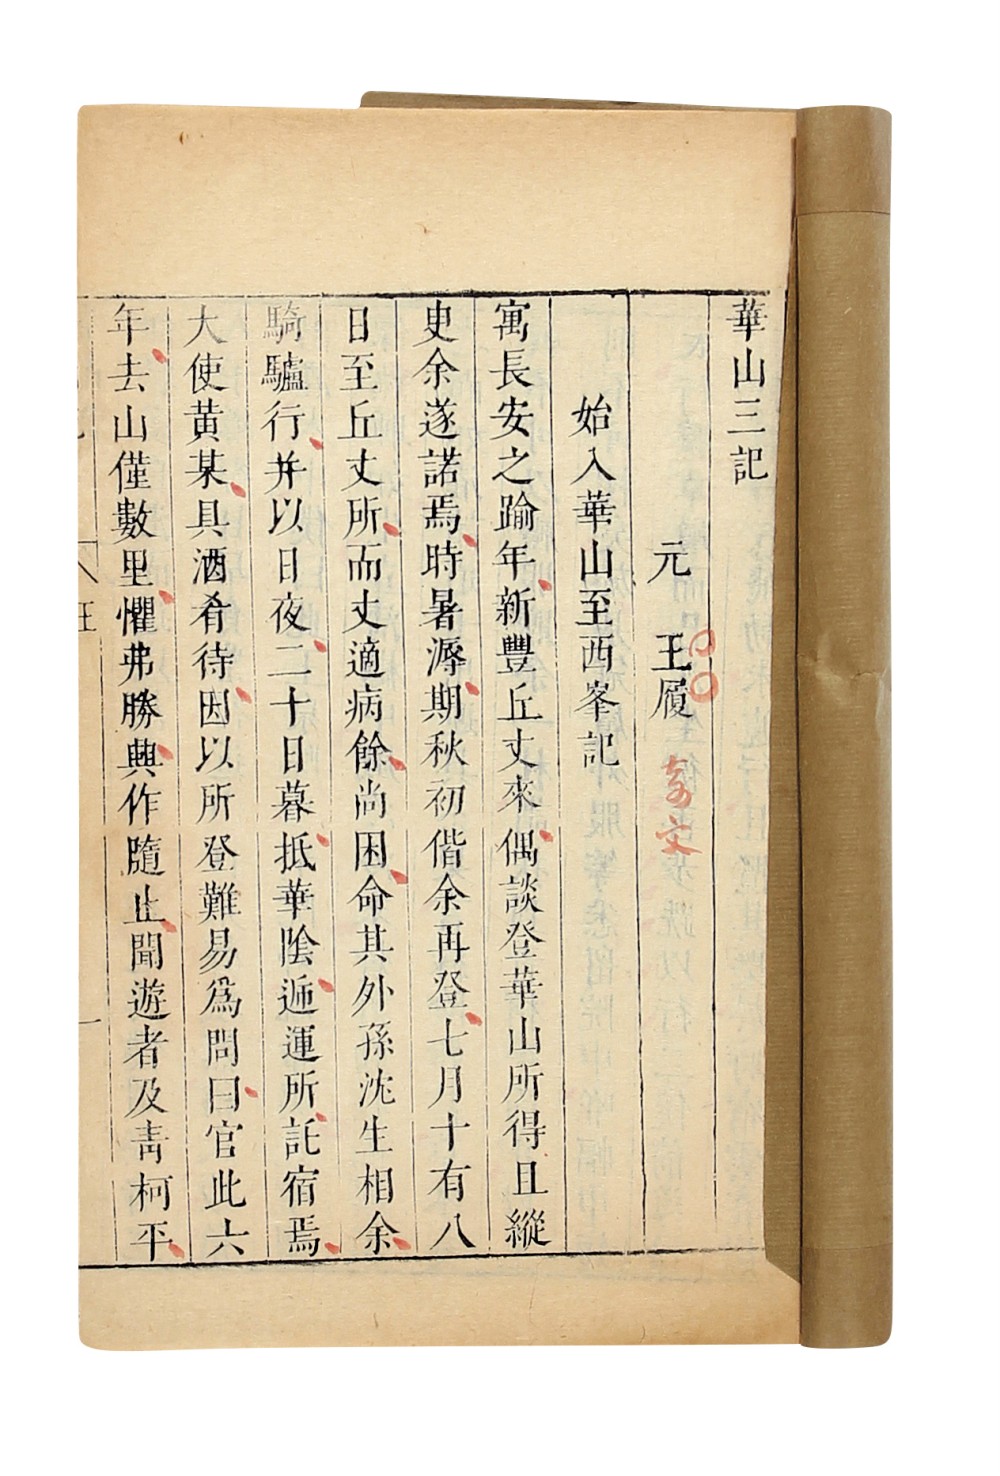 華山三記
元　王履
奇文
始入華山至西峯記
寓長安之踰年新豐丘丈來偶談登華山所得且縱
臾余遂諾焉時暑溽期秋初偕余再登七月十有八
日至丘丈所而丈適病餘尚困命其外孫沈生相余
騎驢行并以日夜二十日暮抵華陰逓運所託宿焉
大使黄某具酒肴待因以所登難易爲問曰官此六
年去山僅數里懼弗勝輿作隨止聞遊者及靑柯平